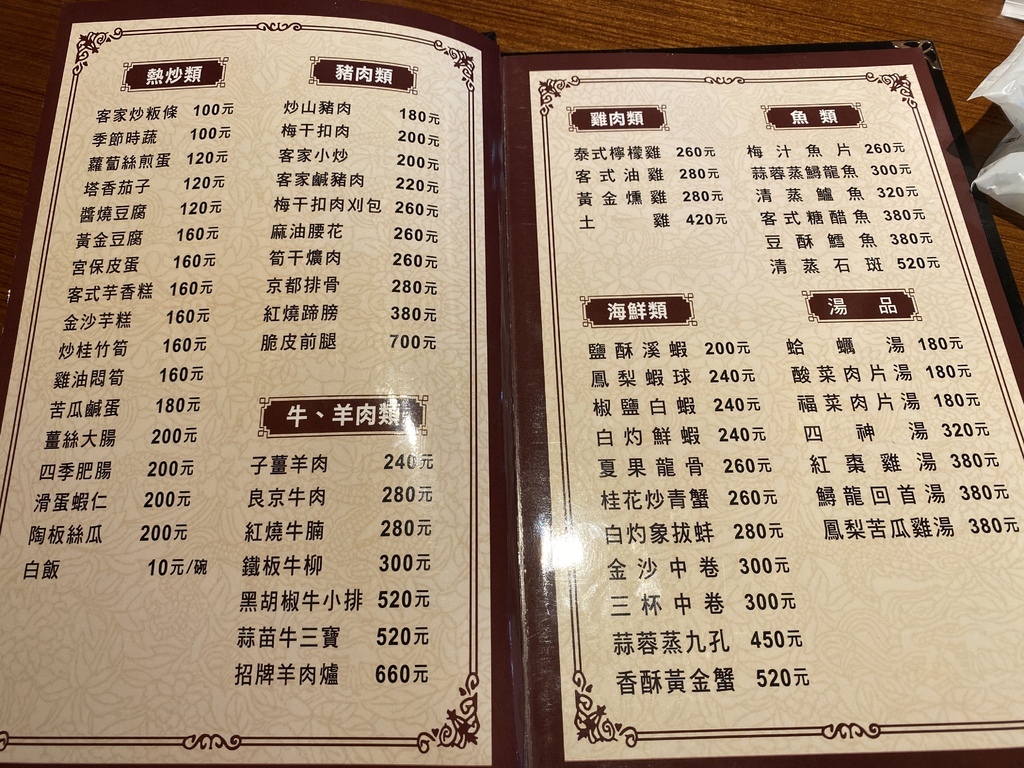 熱炒類
客家炒粄條 100元
季節時蔬 100元
蘿蔔絲煎蛋 120元
塔香茄子 120元
醬燒豆腐 120元
黃金豆腐 160元
宮保皮蛋 160元
客式芋香糕 160元
金沙芋糕 160元
炒桂竹筍 160元
雞油悶筍 160元
苦瓜鹹蛋 180元
薑絲大腸 200元
四季肥腸 200元
滑蛋蝦仁 200元
陶板絲瓜 200元
白飯 10元/碗
豬肉類
炒山豬肉 180元
梅干扣肉 200元
客家小炒 200元
客家鹹豬肉 220元
梅干扣肉刈包 260元
麻油腰花 260元
筍干爌肉 260元
京都排骨 280元
紅燒蹄膀 380元
脆皮前腿 700元
牛、羊肉類
子薑羊肉 240元
良京牛肉 280元
紅燒牛腩 280元
鐵板牛柳 300元
黑胡椒牛小排 520元
蒜苗牛三寶 520元
招牌羊肉爐 660元
雞肉類
泰式檸檬雞 260元
客式油雞 280元
黃金燻雞 280元
土雞 420元
魚類
梅汁魚片 260元
蒜蓉蒸鱘龍魚 300元
清蒸鱸魚 320元
客式糖醋魚 380元
豆酥鱈魚 380元
清蒸石斑 520元
海鮮類
鹽酥溪蝦 200元
鳳梨蝦球 240元
椒鹽白蝦 240元
白灼鮮蝦 240元
夏果龍骨 260元
桂花炒青蟹 260元
白灼象拔蚌 280元
金沙中卷 300元
三杯中卷 300元
蒜蓉蒸九孔 450元
香酥黃金蟹 520元
湯品
蛤蠣湯 180元
酸菜肉片湯 180元
福菜肉片湯 180元
四神湯 320元
紅棗雞湯 380元
鱘龍回首湯 380元
鳳梨苦瓜雞湯 380元